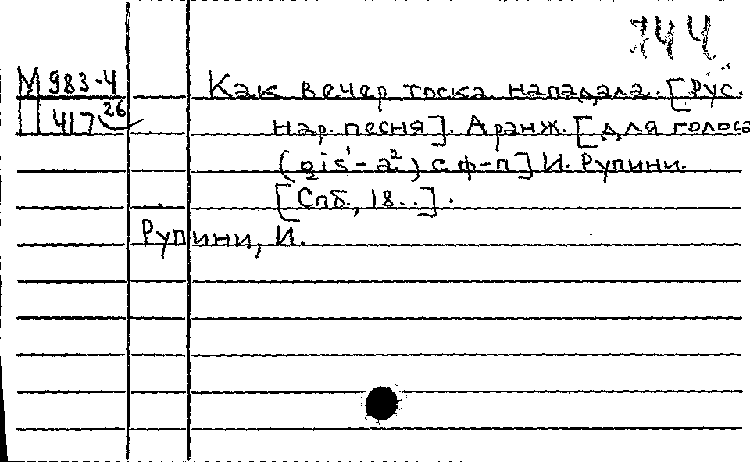 744
М 983-4 Как вечер тоска нападала. [Рус.
П 417 26 нар. песня]. Аранж. [для голоса
(gis¹-a²) с ф-п] И. Рупини.
[Спб, 18..].
Рупини, И.